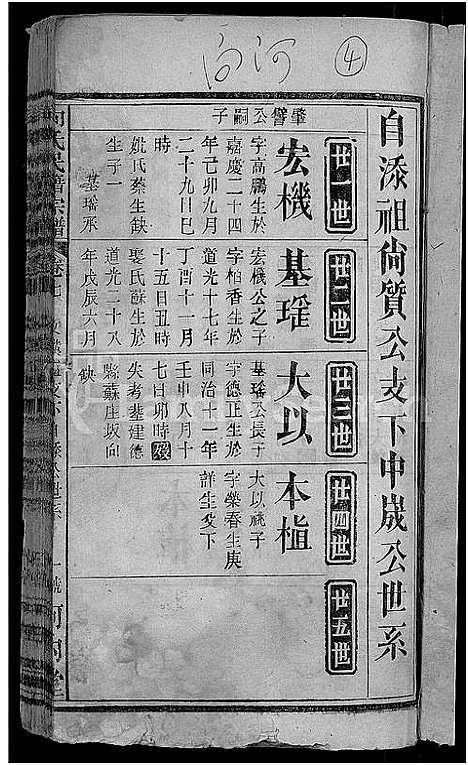 向河 ④
自添祖尙質公支下中歲公世系
廿一世
廿二世
廿三世
廿四世
廿五世
肇嚳公嗣子
宏機
字高鵬生於
嘉慶二十四
年己卯九月
二十九日巳
時
妣氏蔡生缺
生子一
基瑤承
基瑤
宏機公之子
字柏香生於
道光十七年
丁酉十一月
十五日丑時
娶氏蘇生於
道光二十八
年戊辰六月
缺
大以
基瑤公長子
字德正生於
同治十一年
壬申八月十
七日卯時歿
失考塟建德
縣蘇庄坂向
缺
本植
大以祧子
字榮春生庚
詳生父下